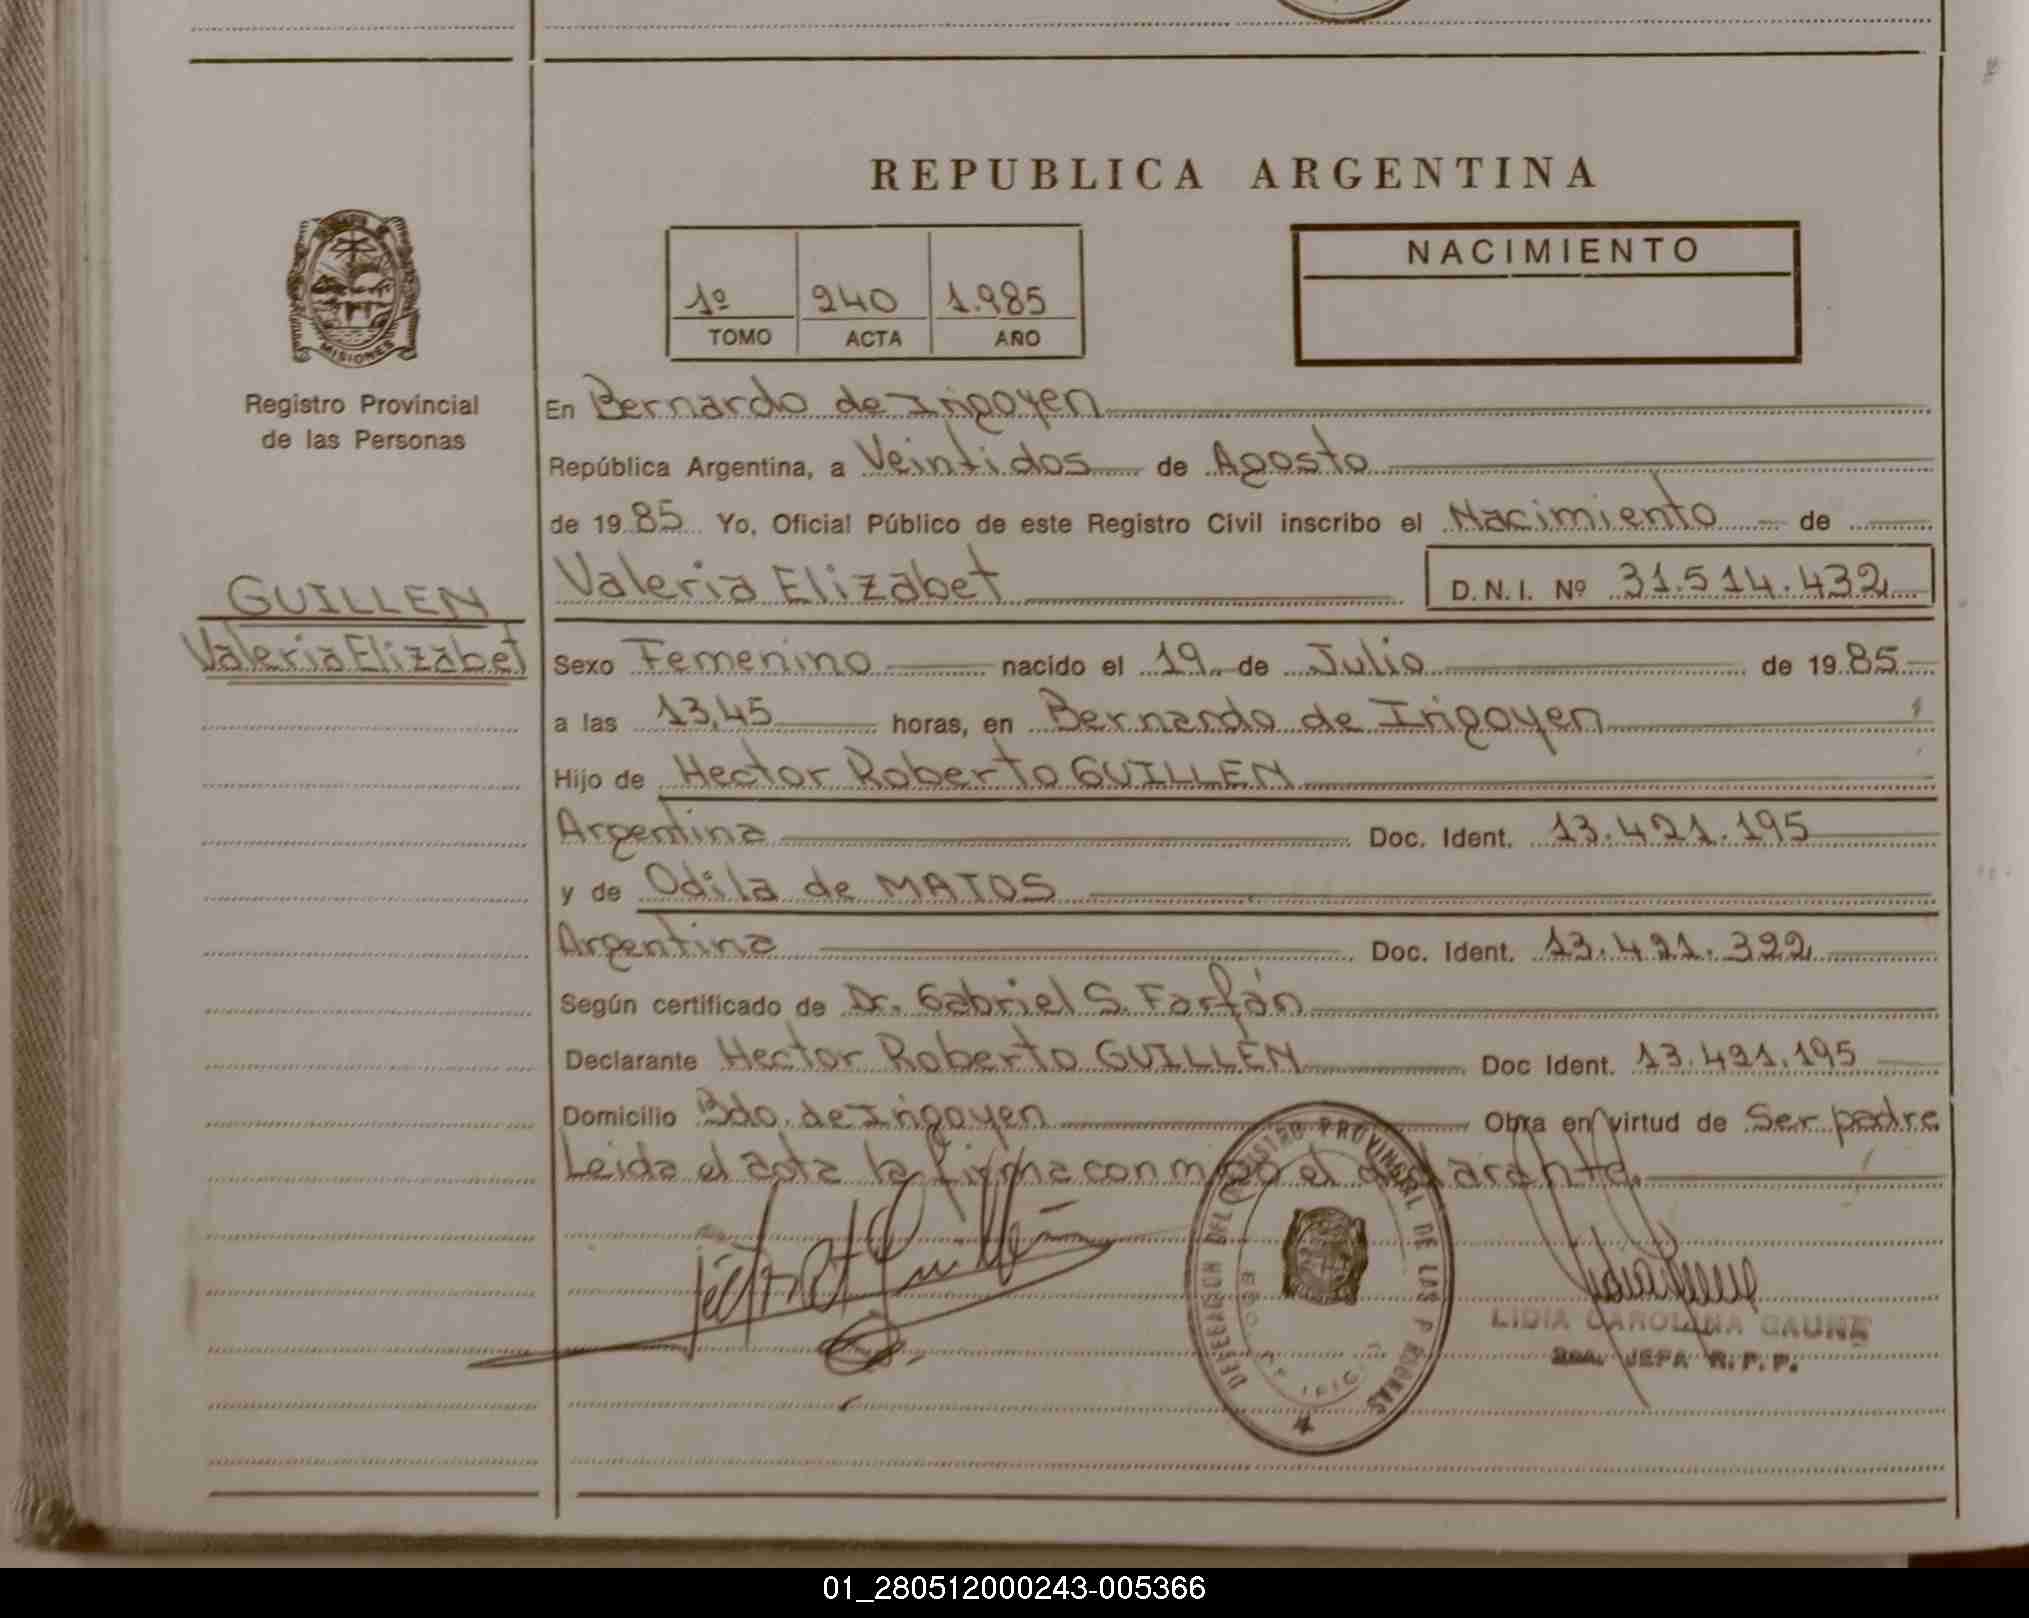 REPUBLICA ARGENTINA
MISIONES
Registro Provincial
de las Personas
1º 240 1.985
TOMO ACTA AÑO
NACIMIENTO
En Bernardo de Irigoyen
República Argentina, a Veintidos de Agosto
de 1985 Yo, Oficial Público de este Registro Civil inscribo el Nacimiento de
GUILLEN
Valeria Elizabet
Valeria Elizabet D.N.I. Nº 31.514.432
Sexo Femenino nacido el 19 de Julio de 1985
a las 13,45 horas, en Bernardo de Irigoyen
Hijo de Hector Roberto GUILLEN
Argentina Doc. Ident. 13.421.195
y de Odila de MATOS
Argentina Doc. Ident. 13.421.322
Según certificado de Dr. Gabriel S. Farfán
Declarante Hector Roberto GUILLEN Doc Ident. 13.421.195
Domicilio Bdo. de Irigoyen Obra en virtud de Ser padre
Leida el acta la firma con migo el declarante.
DELEGACION DEL REGISTRO PROVINCIAL DE LAS PERSONAS
LIDIA CAROLINA GAUNA
JEFA R.P.P.
01_280512000243-005366